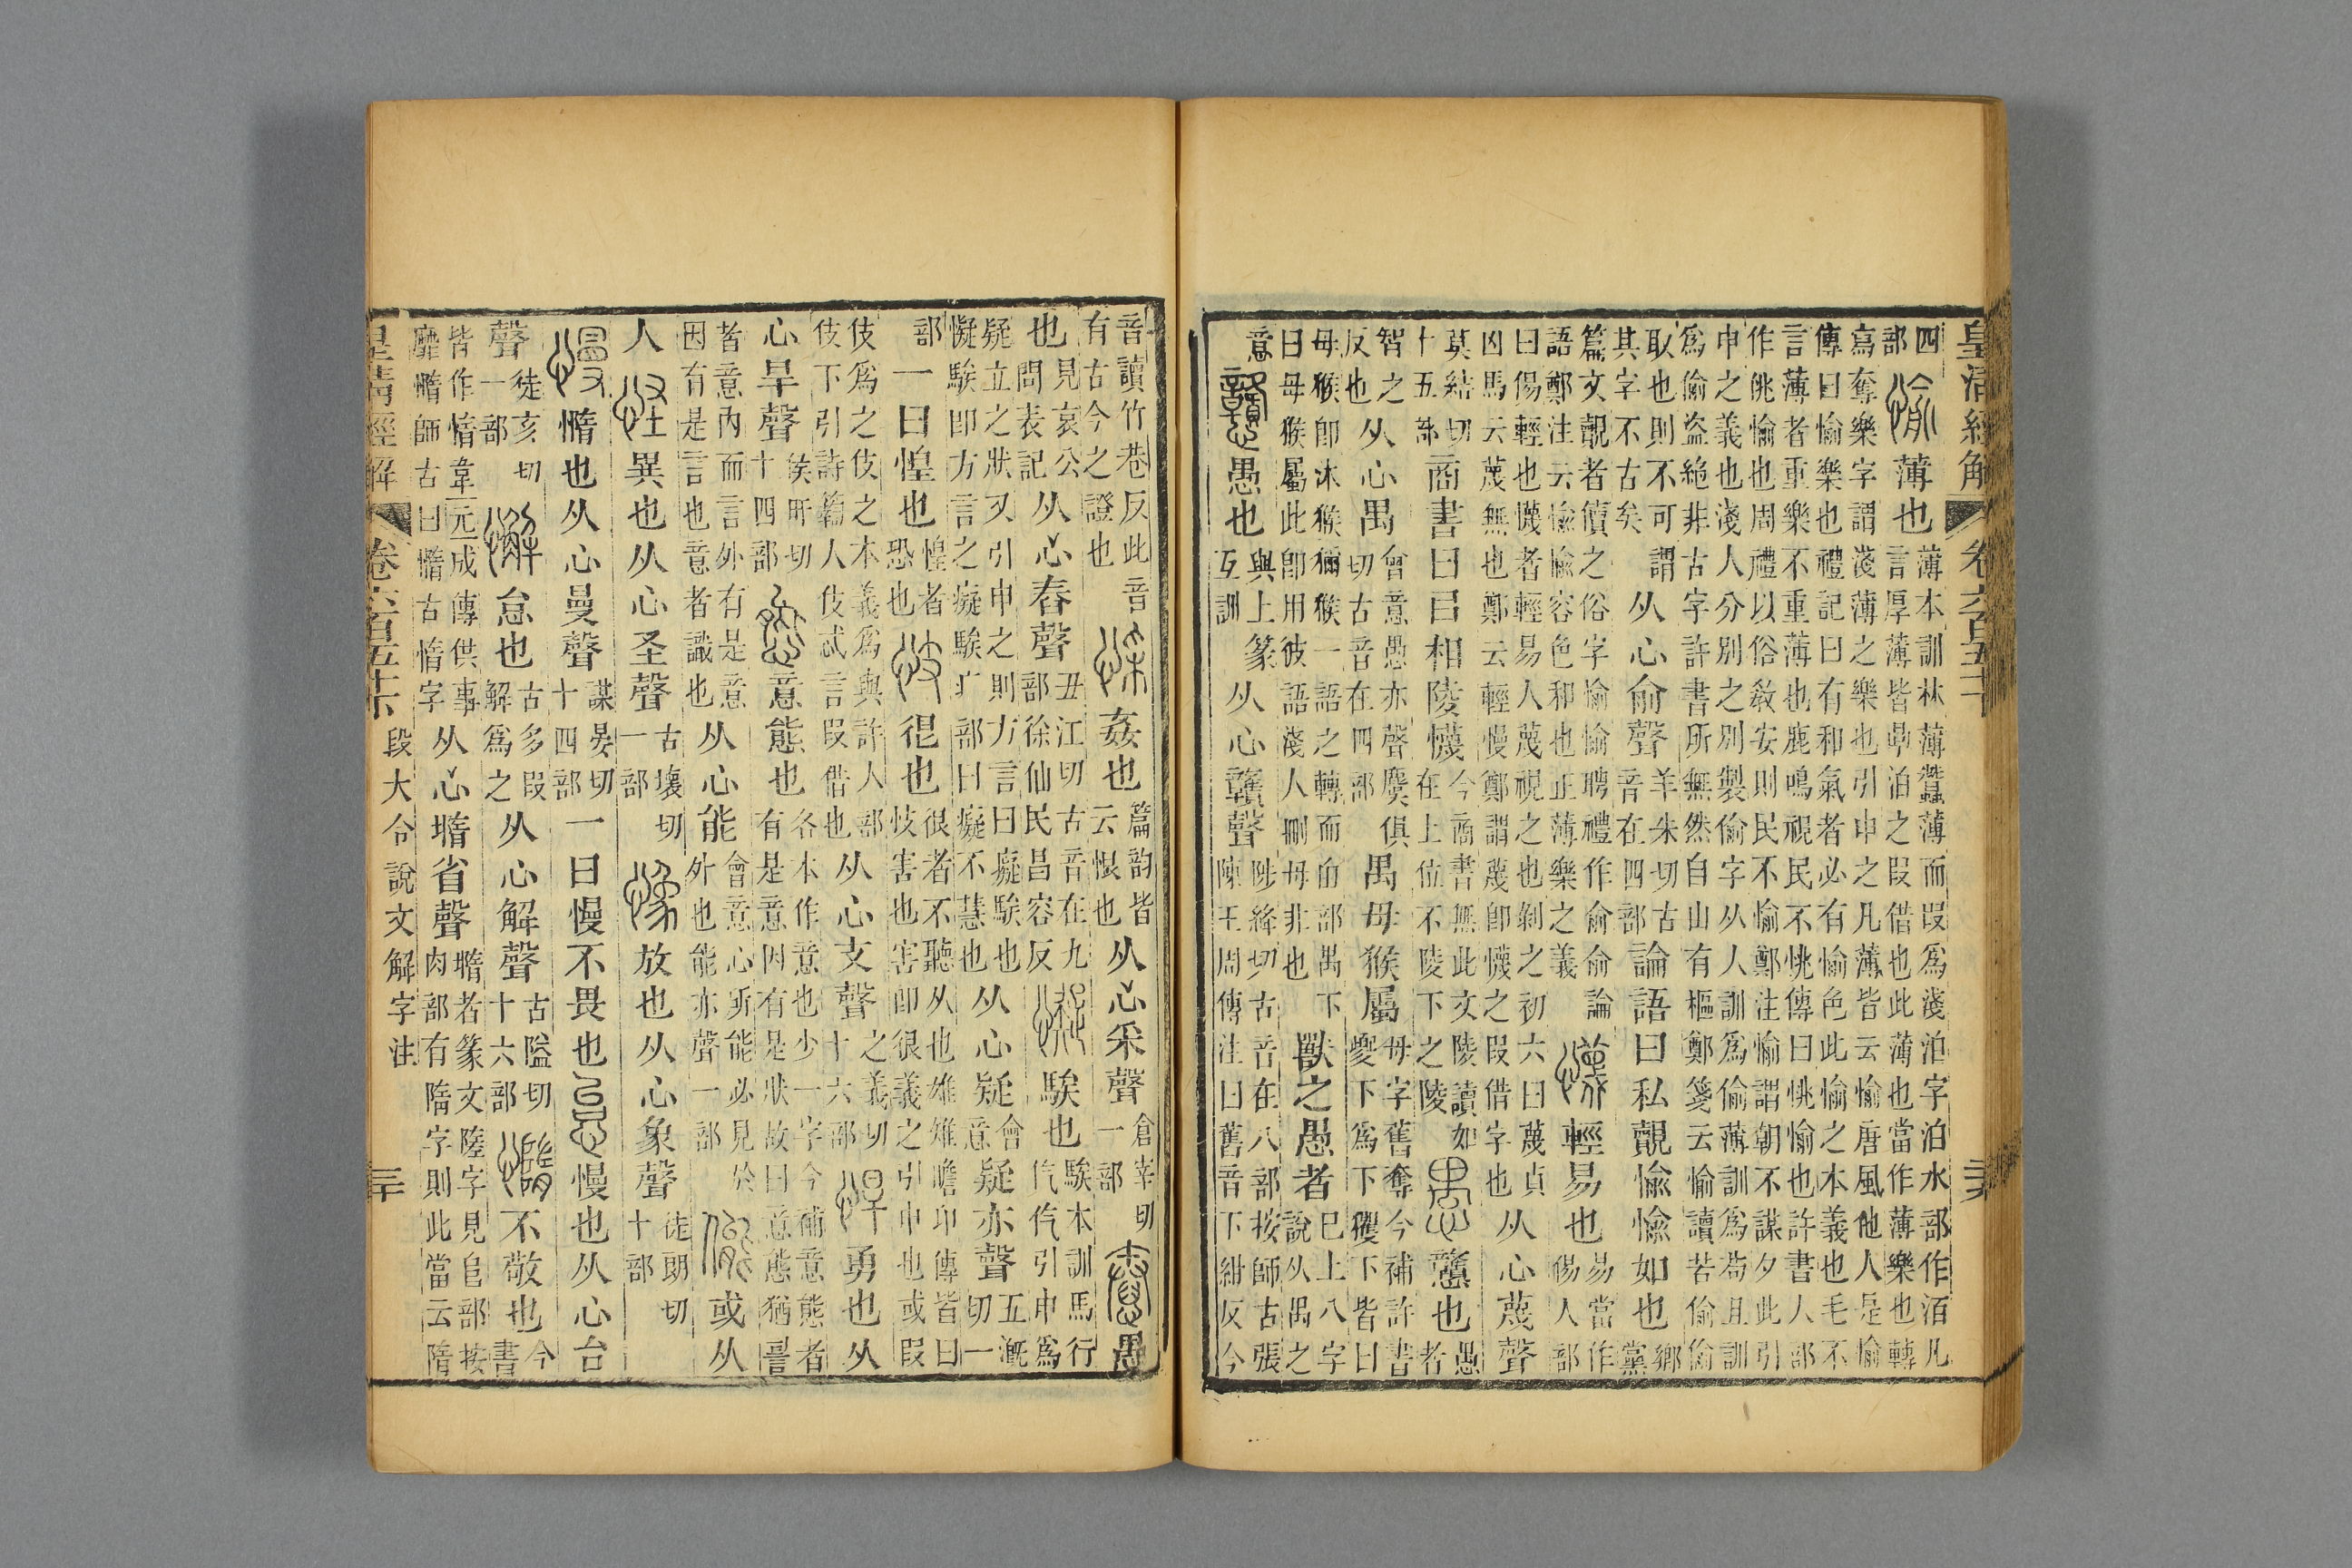 皇清經解 卷六百五十下
四部愉薄也薄本訓林薄蠶薄而叚爲淺泊字泊水部作洦凡言厚薄皆當泊之叚借也此薄也當作薄樂也轉
寫奪樂字謂淺薄之樂也引申之凡薄皆云愉唐風他人是愉傳曰愉樂也禮記曰有和氣者必有愉色此愉之本義也毛不
言薄者重樂不重薄也鹿鳴視民不恌傳曰恌愉也許書人部作佻愉也周禮以俗敎安則民不愉鄭注愉謂朝不謀夕此引
申之義也淺人分別之別製偷字从人訓爲偷薄訓爲苟且訓爲偷盜絶非古字許書所無然自山有樞鄭箋云愉讀若偷偷
取也則不可謂其字不古矣从心俞聲羊朱切古音在四部論語曰私覿愉愉如也鄉黨
篇文覿者儥之俗字愉愉聘禮作俞俞論語鄭注云愉愉容色和也正薄樂之義懱輕易也易當作傷人部
曰傷輕也懱者輕易人蔑視之也剝之初六曰蔑貞凶馬云蔑無也鄭云輕慢鄭謂蔑卽懱之叚借字也从心蔑聲
莫結切十五部商書曰曰相陵懱今商書無此文陵讀如在上位不陵下之陵愚戇也愚者
智之反也从心禺會意愚亦聲麌俱切古音在四部禺母猴屬母字舊奪今補許書夒下爲下玃下皆曰
母猴卽沐猴獼猴一語之轉而甶部禺下曰母猴屬此卽用彼語淺人刪母非也獸之愚者已上八字說从禺之
意戇愚也與上篆互訓从心贛聲陟絳切古音在八部按師古張陳王周傳注曰舊音下紺反今
音讀竹巷反此音有古今之證也㥒姦也篇韵皆云恨也从心采聲倉宰切一部惷愚
也見哀公問表記从心舂聲丑江切古音在九部徐仙民昌容反懝騃也騃本訓馬行仡仡引申爲
疑立之狀又引申之則方言曰癡騃也懝騃卽方言之癡騃疒部曰癡不慧也从心疑會意疑亦聲五漑切一
部一曰惶也惶者恐也忮很也很者不聽从也雄雉瞻卬傳皆曰忮害也害卽很義之引申也或叚
伎爲之伎之本義爲與許人部伎下引詩籥人伎忒言叚借也从心支聲之義切十六部悍勇也从
心旱聲矦旰切十四部態意態也各本作意也少一字今補意態者有是意因有是狀故曰意態猶䛐
者意內而言外有是意因有是言也意者識也从心能會意心所能必見於外也能亦聲一部㑷或从
人怪異也从心圣聲古壞切一部像放也从心象聲徒朗切十部
慢惰也从心曼聲謀晏切十四部一曰慢不畏也怠慢也从心台
聲徒亥切一部懈怠也古多叚解爲之从心解聲古隘切十六部憜不敬也今書
皆作惰韋元成傳供事靡憜師古曰憜古惰字从心墮省聲墮者篆文陸字見𨸏部按肉部有隋字則此當云隋
皇清經解 卷六百五十下 段大令說文解字注 三十